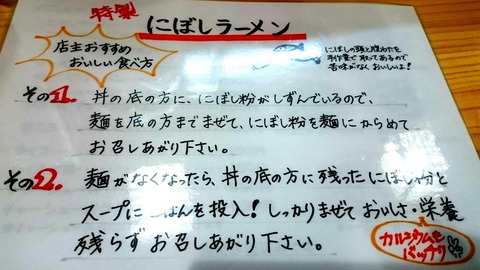 特製
にぼしラーメン
店主おすすめ
おいしい食べ方
にぼしの頭と腹わたを
手作業で取ってあるので
苦味がなくおいしいよ!
その1. 丼の底の方に、にぼし粉がしずんでいるので、
麺を底の方までまぜて、にぼし粉を麺にからめて
お召しあがり下さい。
その2. 麺がなくなったら、丼の底の方に残ったにぼし粉と
スープにごはんを投入!しっかりまぜておいしさ・栄養
残らずお召しあがり下さい。
カルシウムも
バッチリ